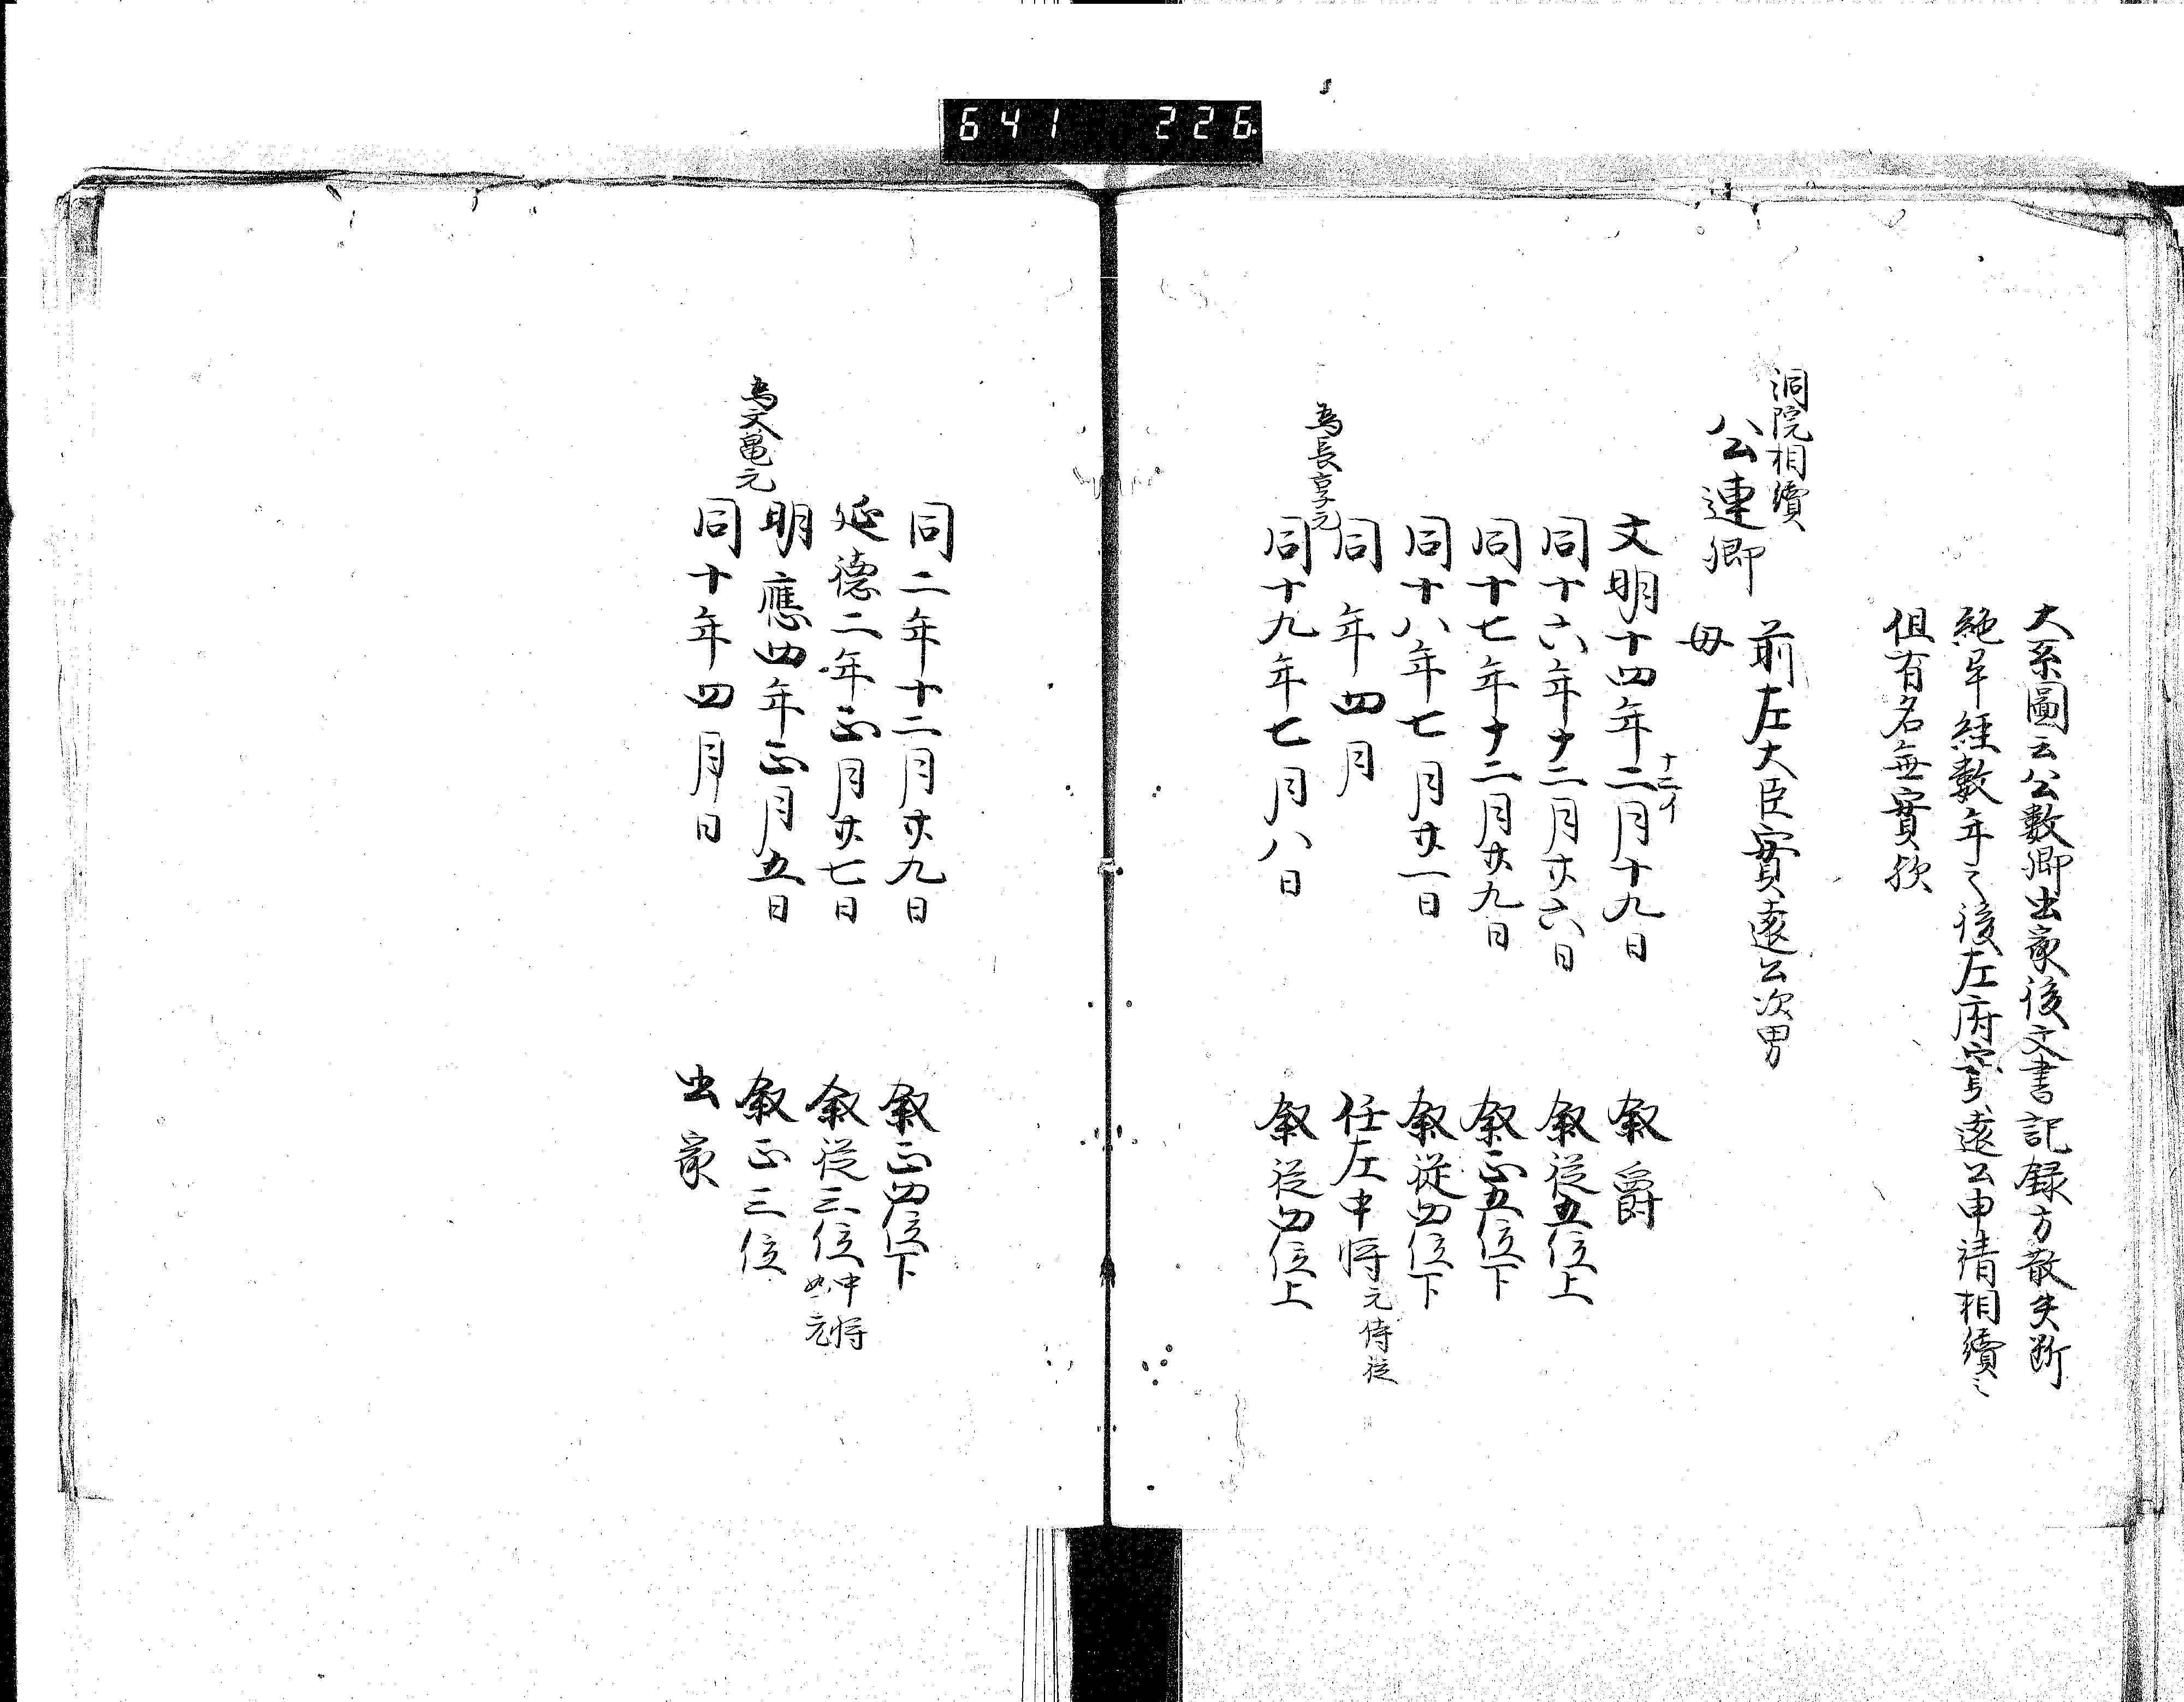 641 226
大系圖云公數卿出家後文書記録方散失断
絶畢経數年之後左府實遠公申請相續之
但有名無實歟
洞院相續
公連卿
前左大臣實遠公次男
母
文明十四年二月十九日 叙爵
十二イ
同十六年十二月廿六日 叙従五位上
同十七年十二月廿九日 叙正五位下
同十八年七月廿一日 叙従四位下
同 年四月 任左中将元侍従
為長享元
同十九年七月八日 叙従四位上
同二年十二月廿九日 叙正四位下
延德二年正月廿七日 叙従三位中将如元
明應四年正月五日 叙正三位
為文亀元
同十年四月 日 出家